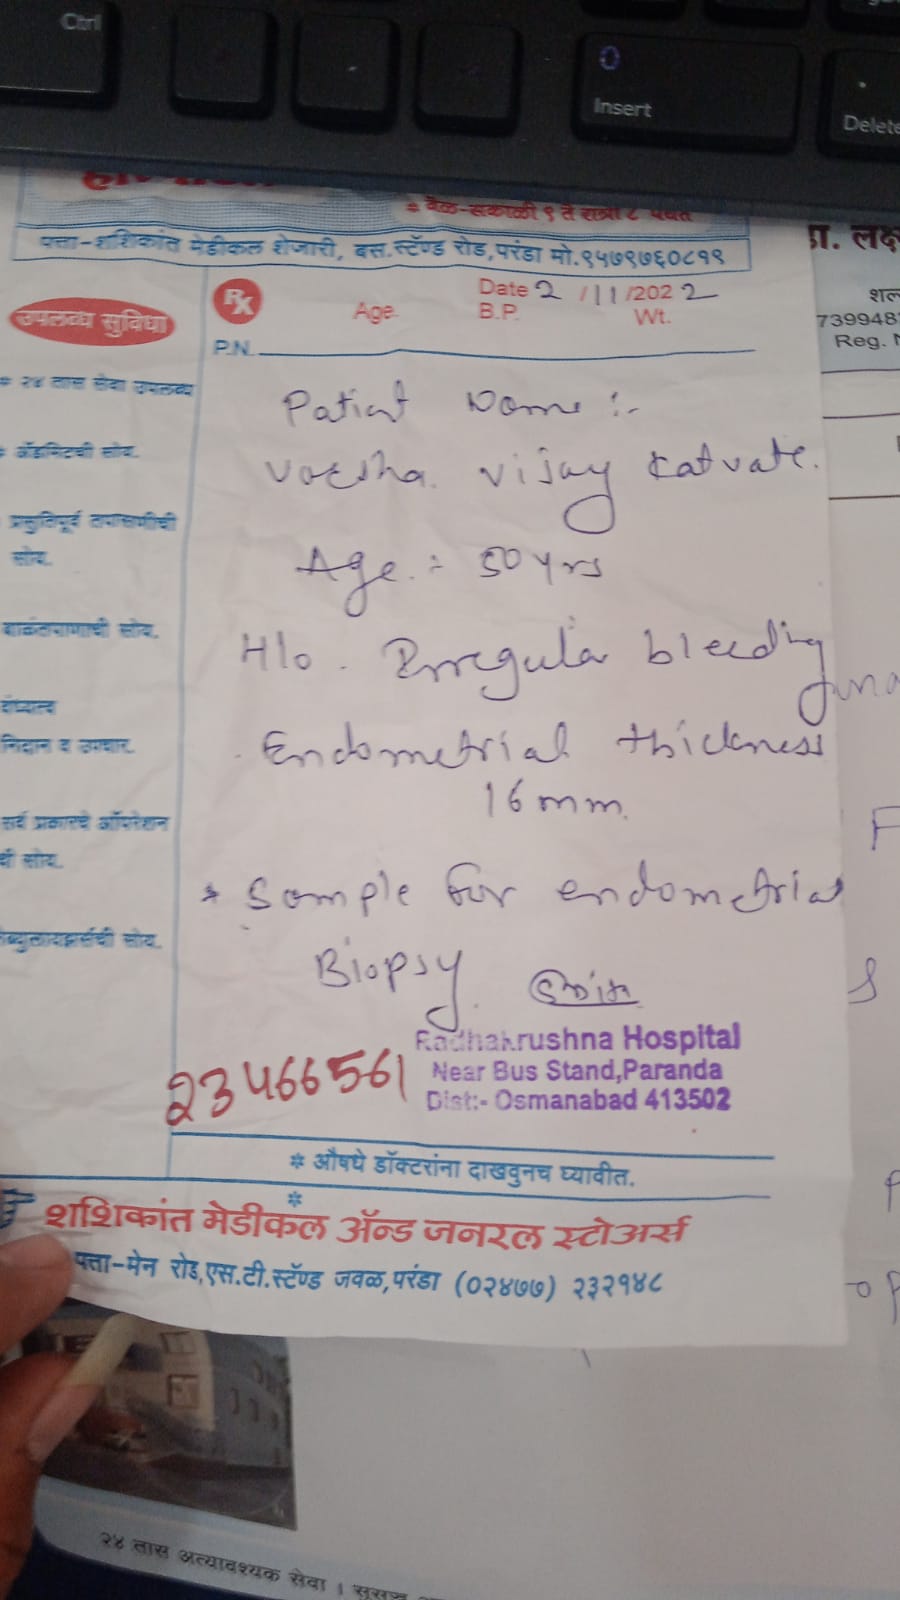 Ctrl
0
Insert
Delete
* वेळ-सकाळी ९ ते रात्री ८ पर्यंत
पत्ता-शशिकांत मेडीकल शेजारी, बस.स्टॅण्ड रोड,परंडा मो.९५७९७६०८१९
उपलब्ध सुविधा
Rx
Age.
Date 2 /11/2022
B.P.
Wt.
P.N.
* २४ तास सेवा उपलब्ध
* ॲडमिटची सोय.
प्रसुतिपूर्व तपासणीची
सोय.
बाळंतपणाची सोय.
वंध्यत्व
निदान व उपचार.
सर्व प्रकारचे ऑपरेशन
ची सोय.
ची सोय.
Patient Name :-
Varsha. Vijay Katvate.
Age. :- 50 yrs
H/o. Irregular bleeding
Endometrial thickness
16 mm.
* Sample for endometrial
Biopsy.
Radhakrushna Hospital
Near Bus Stand,Paranda
Dist:- Osmanabad 413502
23466561
* औषधे डॉक्टरांना दाखवुनच घ्यावीत.
*
शशिकांत मेडीकल ॲन्ड जनरल स्टोअर्स
पत्ता-मेन रोड,एस.टी.स्टॅण्ड जवळ,परंडा (०२४७७) २३२१४८
डा. लक्ष
शल
739948
Reg. N
२४ तास अत्यावश्यक सेवा ।